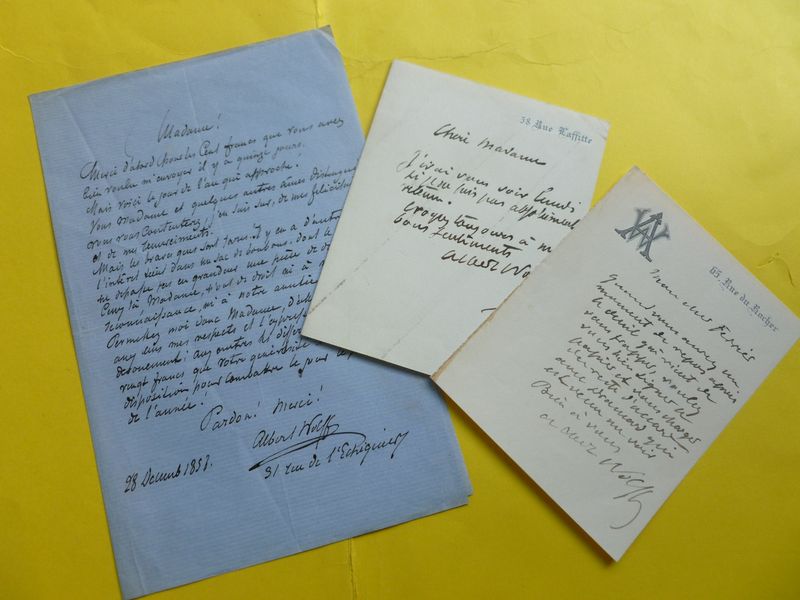 Madame!
Merci d'abord pour les Cent francs que vous avez
bien voulu m'envoyer il y a quinze jours.
Mais voici le jour de l'an qui approche!
Vous Madame et quelques autres âmes
vous vous contenterez, j'en suis sur, de mes
et de mes remerciments.
Mais les braves gens sont rares. il y en a d'autres
l'intérêt dans un sac de bonbons, dont le
ne dépasse pas en grandeur une pièce de
Ceux là Madame, n'ont de droit ni à
reconnaissance, ni à notre
Permettez moi donc Madame, d'
avec mes respects et l'
devouement: aux autres
vingt francs que votre générosité
disposition pour combattre le jour de
de l'année!
Pardon! Merci!
Albert Wolff
28 Decemb 1858.
31 rue de l'Echiquier
38 Rue Laffitte
Chère Madame
J'irai vous voir lundi
si je ne suis pas absolument
retenu.
Croyez toujours à m
bons sentiments
Albert Wo
AW
65, Rue du Rocher
Mon cher Ferrier
Quand vous aurez un
moment de repos après
le deuil qui vient de
vous frapper, voulez
vous bien signer ce
papier et vous charger
du reste d'accord
avec qui
est venu me voir
Bien à vous
Albert Wolff